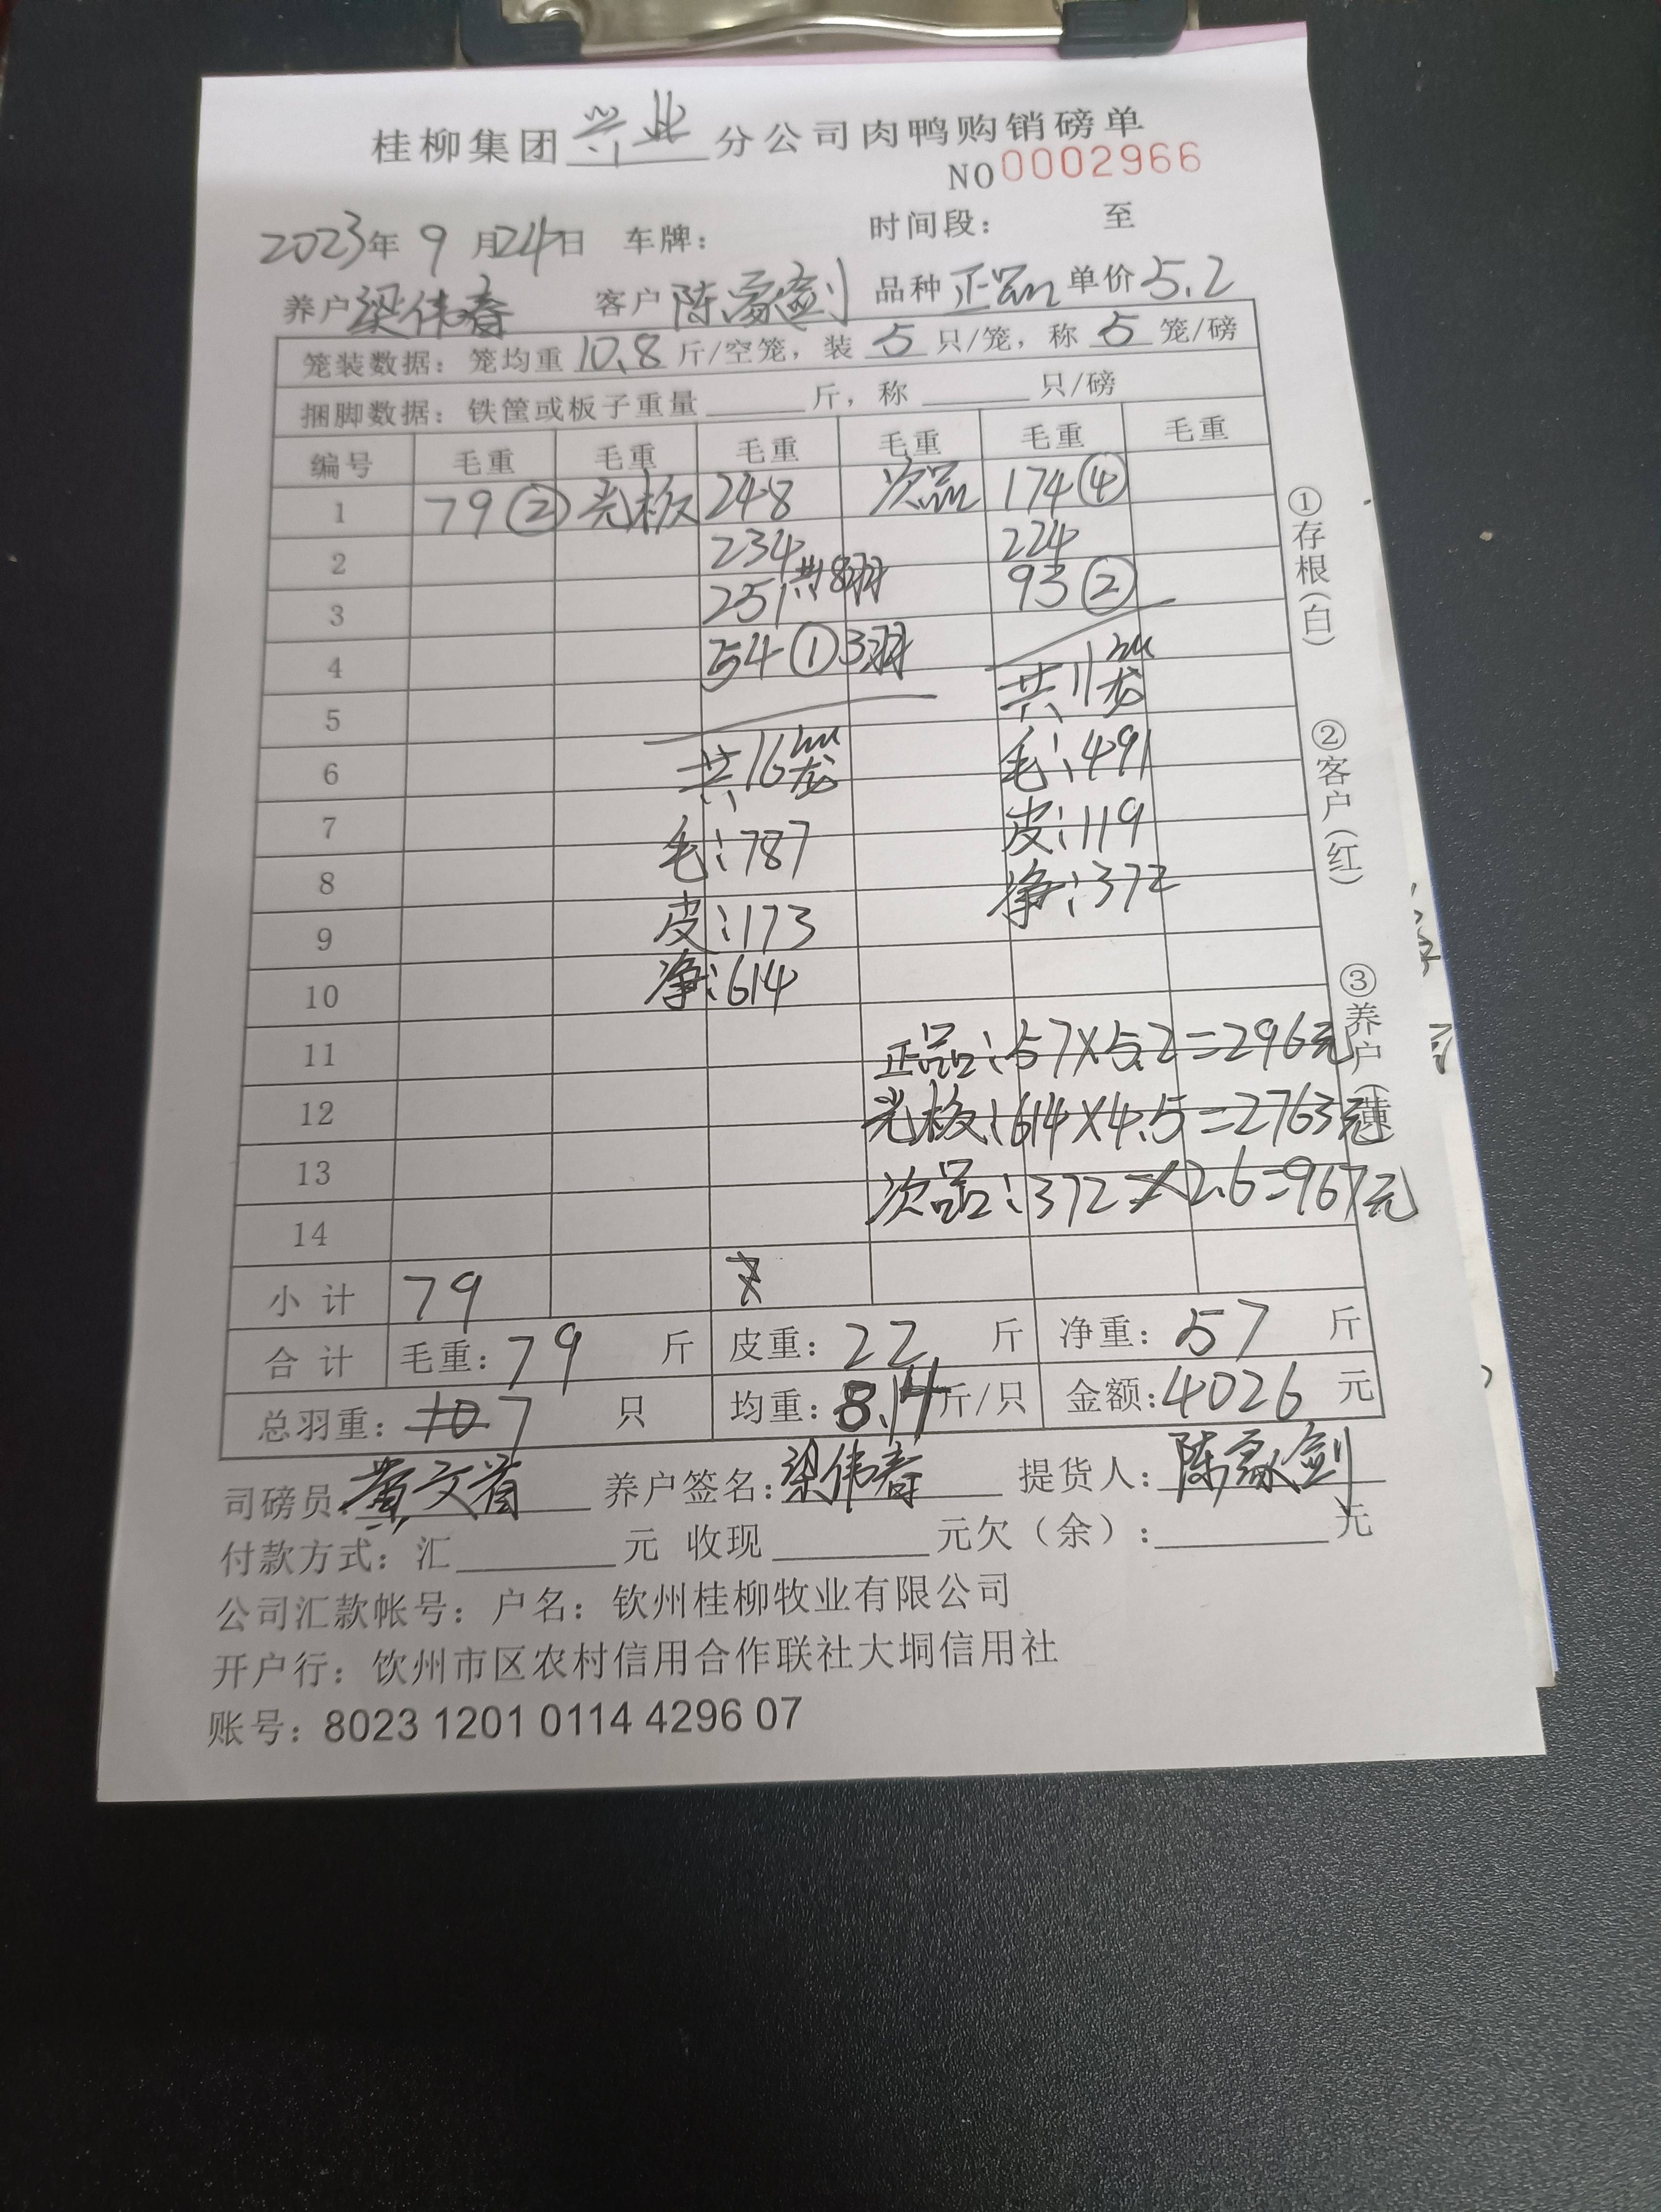 桂柳集团兴业分公司肉鸭购销磅单
NO0002966
2023年9月24日 车牌: 时间段: 至
养户梁伟春 客户陈家剑 品种正品 单价5.2
笼装数据: 笼均重10.8斤/空笼, 装5只/笼, 称5笼/磅
捆脚数据: 铁筐或板子重量____斤, 称____只/磅
编号 毛重 毛重 毛重 毛重 毛重 毛重
1 79② 光板 248 次品 174④
2 234 224
3 251 共83羽 93②
4 54①3羽
共11笼
5
6 共16笼 毛:491
7 毛:787 皮:119
8 净:372
9 皮:173
10 净:614
11 正品:57×5.2=296元
12 光板:614×4.5=2763元
13 次品:372×2.6=967元
14
小计 79
合计 毛重:79斤 皮重:22斤 净重:57斤
总羽重:7只 均重:8.14斤/只 金额:4026元
司磅员:黄文 养户签名:梁伟春 提货人:陈家剑
付款方式: 汇____元 收现____元欠(余):____元
公司汇款帐号: 户名: 钦州桂柳牧业有限公司
开户行: 饮州市区农村信用合作联社大垌信用社
账号: 8023 1201 0114 4296 07
①存根(白)
②客户(红)
③养户(蓮